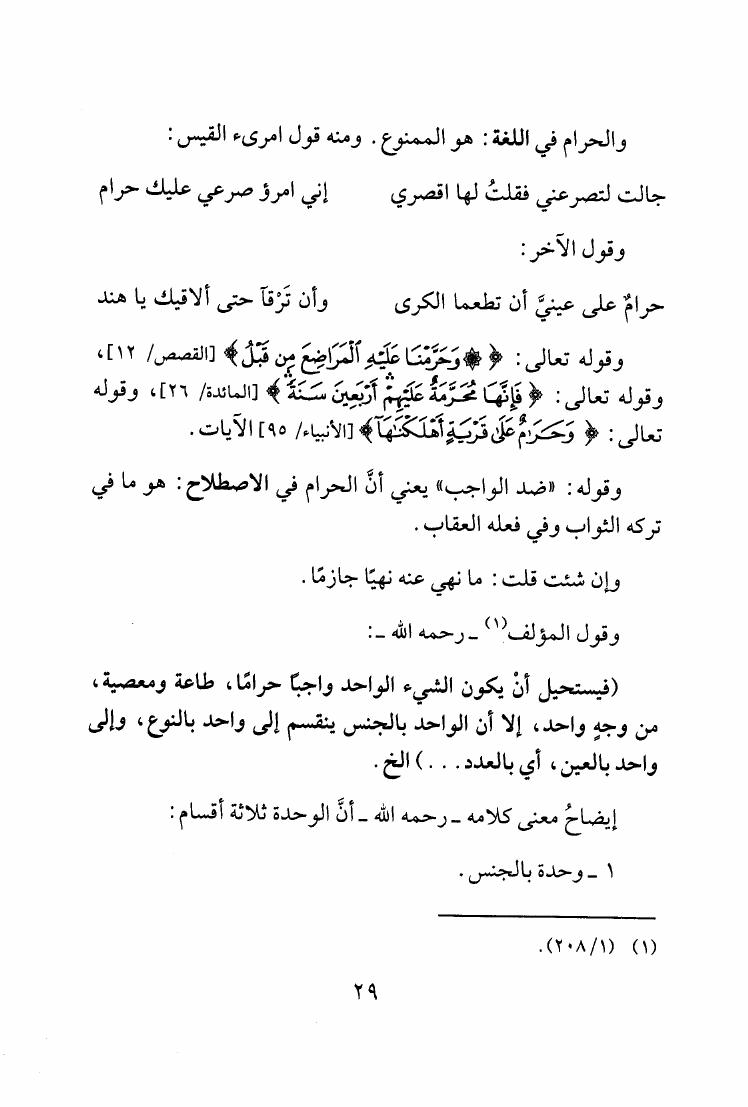 والحرام في اللغة: هو الممنوع. ومنه قول امرىء القيس:
جالت لتصرعني فقلتُ لها اقصري إني امرؤ صرعي عليك حرام
وقول الآخر:
حرامٌ على عينيَّ أن تطعما الكرى وأن تَرْقآ حتى ألاقيك يا هند
وقوله تعالى: ﴿ ۞ وَحَرَّمْنَا عَلَيْهِ ٱلْمَرَاضِعَ مِن قَبْلُ﴾ [القصص/ ١٢]،
وقوله تعالى: ﴿ فَإِنَّهَا مُحَرَّمَةٌ عَلَيْهِمْۛ أَرْبَعِينَ سَنَةًۛ ﴾ [المائدة/ ٢٦]، وقوله
تعالى: ﴿ وَحَرَٰمٌ عَلَىٰ قَرْيَةٍ أَهْلَكْنَٰهَآ﴾ [الأنبياء/ ٩٥] الآيات.
وقوله: «ضد الواجب» يعني أنَّ الحرام في الاصطلاح: هو ما في
تركه الثواب وفي فعله العقاب.
وإن شئت قلت: ما نهي عنه نهيًا جازمًا.
وقول المؤلف(١) ـ رحمه الله ـ:
(فيستحيل أنْ يكون الشيء الواحد واجبًا حرامًا، طاعة ومعصية،
من وجهٍ واحد، إلا أن الواحد بالجنس ينقسم إلى واحد بالنوع، وإلى
واحد بالعين، أي بالعدد. . .) الخ.
إيضاحُ معنى كلامه ـ رحمه الله ـ أنَّ الوحدة ثلاثة أقسام:
١ ـ وحدة بالجنس.
(١) (١/ ٢٠٨).
٢٩